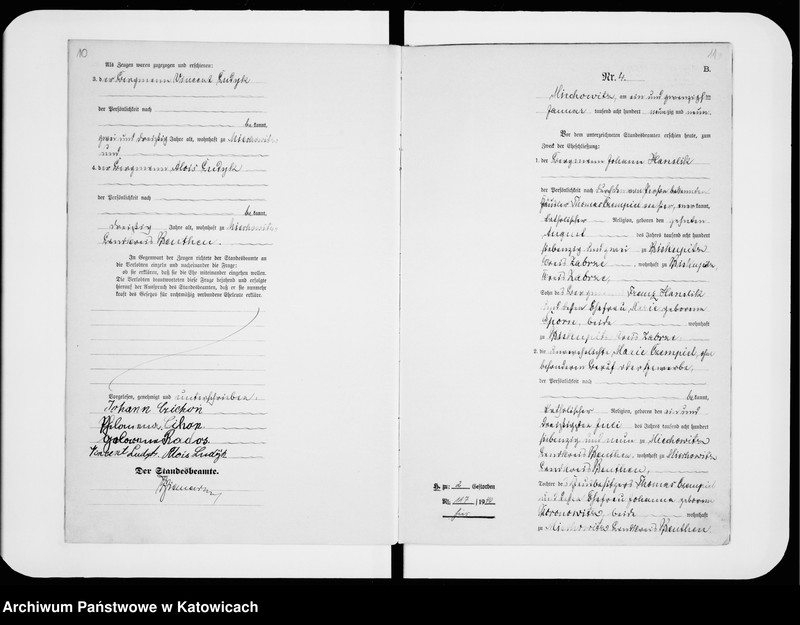 10
Als Zeugen waren zugezogen und erschienen:
3. der Bergmann Vincent Ludyk
der Persönlichkeit nach
be kannt,
zwei und dreißig Jahre alt, wohnhaft zu Miechowitz
und
4. der Bergmann Alois Ludyk
der Persönlichkeit nach
be kannt,
dreißig Jahre alt, wohnhaft zu Miechowitz
Landkreis Beuthen.
In Gegenwart der Zeugen richtete der Standesbeamte an
die Verlobten einzeln und nacheinander die Frage:
ob sie erklären, daß sie die Ehe miteinander eingehen wollen.
Die Verlobten beantworteten diese Frage bejahend und erfolgte
hierauf der Ausspruch des Standesbeamten, daß er sie nunmehr
kraft des Gesetzes für rechtmäßig verbundene Eheleute erkläre.
Vorgelesen, genehmigt und unterschrieben.
Johann
Philomena
Rados
Vincent Ludyk. Alois Ludyk
Der Standesbeamte.
11.
B.
Nr. 4.
Miechowitz, am ein und zwanzigsten
Januar tausend acht hundert neunzig und neun.
Vor dem unterzeichneten Standesbeamten erschien heute, zum
Zweck der Eheschließung:
1. der Bergmann Johann Hanslik
der Persönlichkeit nach durch den von Person bekannten
Häusler Thomas Czempiel anerkannt,
katholischer Religion, geboren den zehnten
August des Jahres tausend acht hundert
siebenzig und zwei zu Biskupitz
Kreis Zabrze, wohnhaft zu Biskupitz,
Kreis Zabrze,
Sohn des Franz Hanslik
und dessen Ehefrau Marie geborene
beide wohnhaft
zu Biskupitz Kreis Zabrze.
2. die unverehelichte Marie Czempiel, ohne
besonderen Beruf oder Gewerbe,
der Persönlichkeit nach
be kannt,
katholischer Religion, geboren den ein und
dreißigsten Juli des Jahres tausend acht hundert
siebenzig und neun zu Miechowitz
Landkreis Beuthen, wohnhaft zu Miechowitz
Landkreis Beuthen,
Tochter des Hausbesitzers Thomas Czempiel
und dessen Ehefrau Johanna geborene
beide wohnhaft
zu Miechowitz Landkreis Beuthen
Gestorben
Nr. 117
hier
Archiwum Państwowe w Katowicach